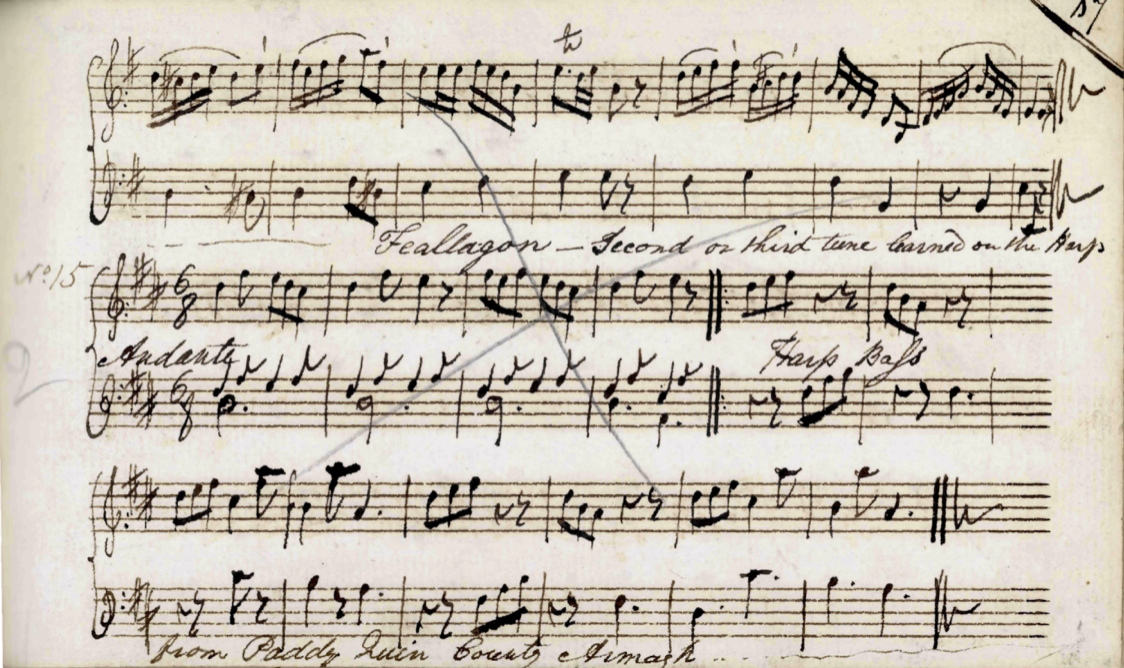 57
tr
Feallagon — Second or third tune learned on the Harp
No. 15
6
8
Andante
Harp Bass
2
6
8
from Paddy Quin County Armagh